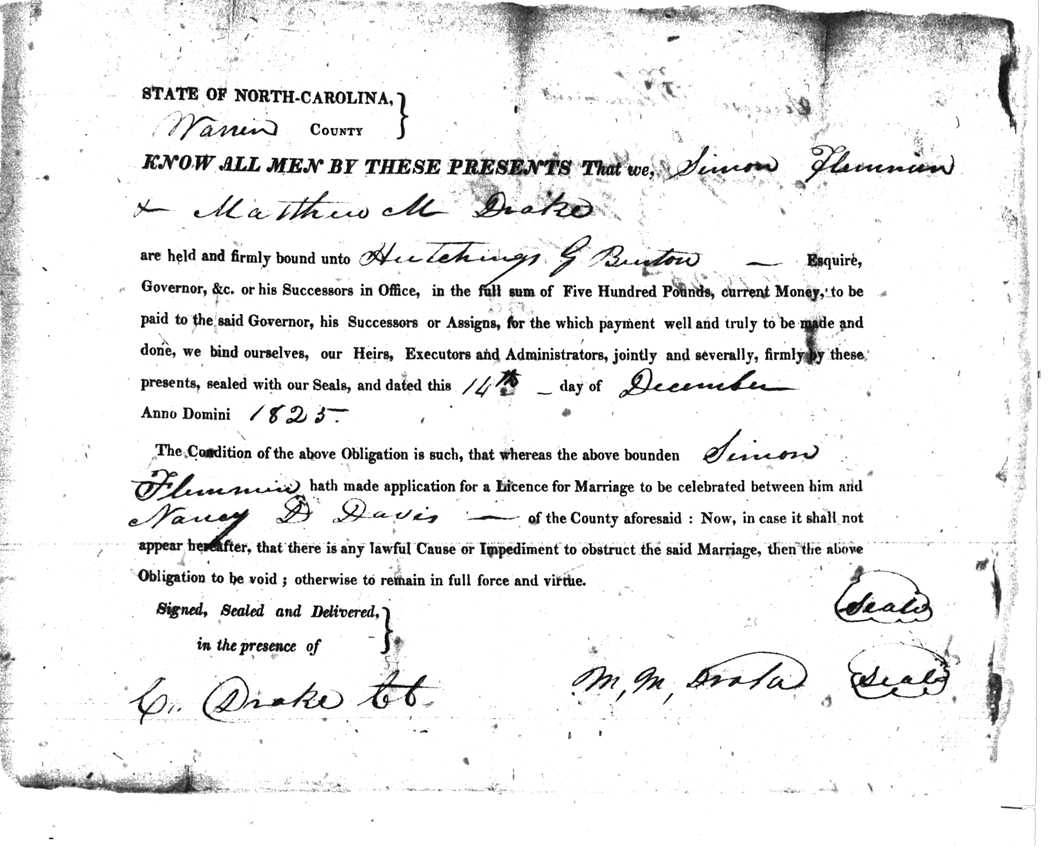 STATE OF NORTH-CAROLINA, }
Warren COUNTY
KNOW ALL MEN BY THESE PRESENTS That we, Simon Flemmin
+ Matthew M Drake
are held and firmly bound unto Hutchings G Burton — Esquire,
Governor, &c. or his Successors in Office, in the full sum of Five Hundred Pounds, current Money, to be
paid to the said Governor, his Successors or Assigns, for the which payment well and truly to be made and
done, we bind ourselves, our Heirs, Executors and Administrators, jointly and severally, firmly by these
presents, sealed with our Seals, and dated this 14th — day of December
Anno Domini 1825.
The Condition of the above Obligation is such, that whereas the above bounden Simon
Flemmin hath made application for a Licence for Marriage to be celebrated between him and
Nancy D Davis — of the County aforesaid : Now, in case it shall not
appear hereafter, that there is any lawful Cause or Impediment to obstruct the said Marriage, then the above
Obligation to be void ; otherwise to remain in full force and virtue.
Signed, Sealed and Delivered, }
in the presence of
Seal
C. Drake Ct. M, M, Drake Seal